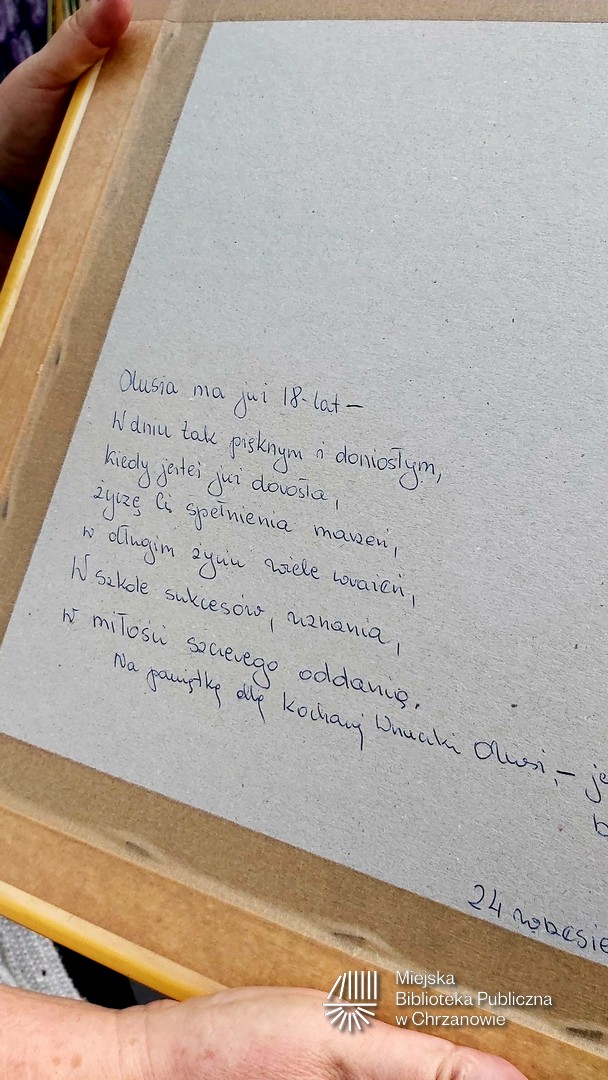 Olusia ma już 18-lat –
W dniu tak pięknym i doniosłym,
kiedy jesteś już dorosła,
życzę Ci spełnienia marzeń,
w długim życiu wiele wrażeń,
W szkole sukcesów, uznania,
w miłości szczerego oddania.
Na pamiątkę dla kochanej Wnuczki Olusi, – je
b
24 wrześie
Miejska
Biblioteka Publiczna
w Chrzanowie